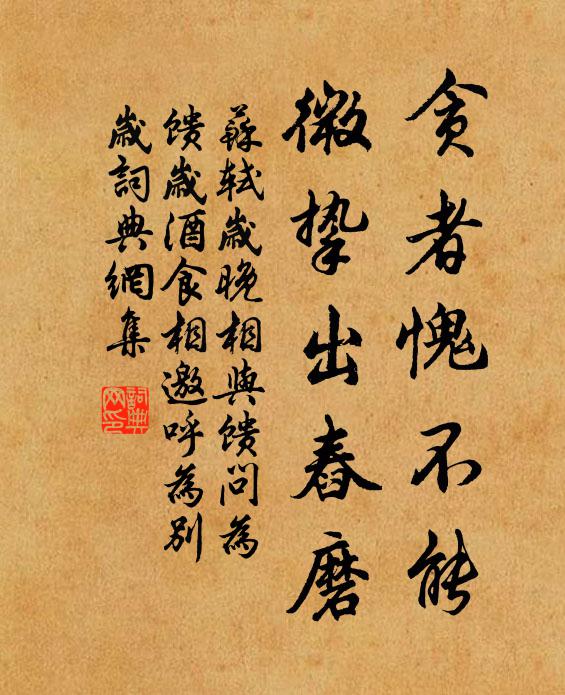 貪者愧不能
微挚出舂磨
蘇軾歲晚相與饋問為
饋歲酒食相邀呼為别
歲詞典網集
詞典
网印